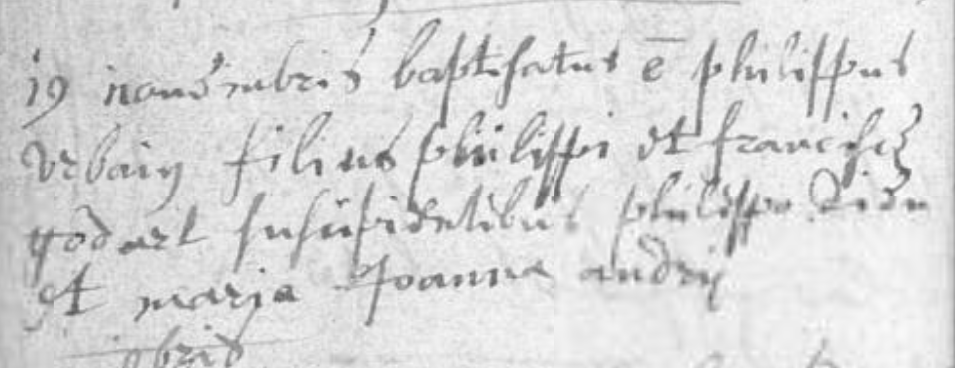 19 novembris baptisatus ē philippus
urbain filius philippi et franciscæ
godart suscipientibus philippo
et maria Joanna andry
9bris